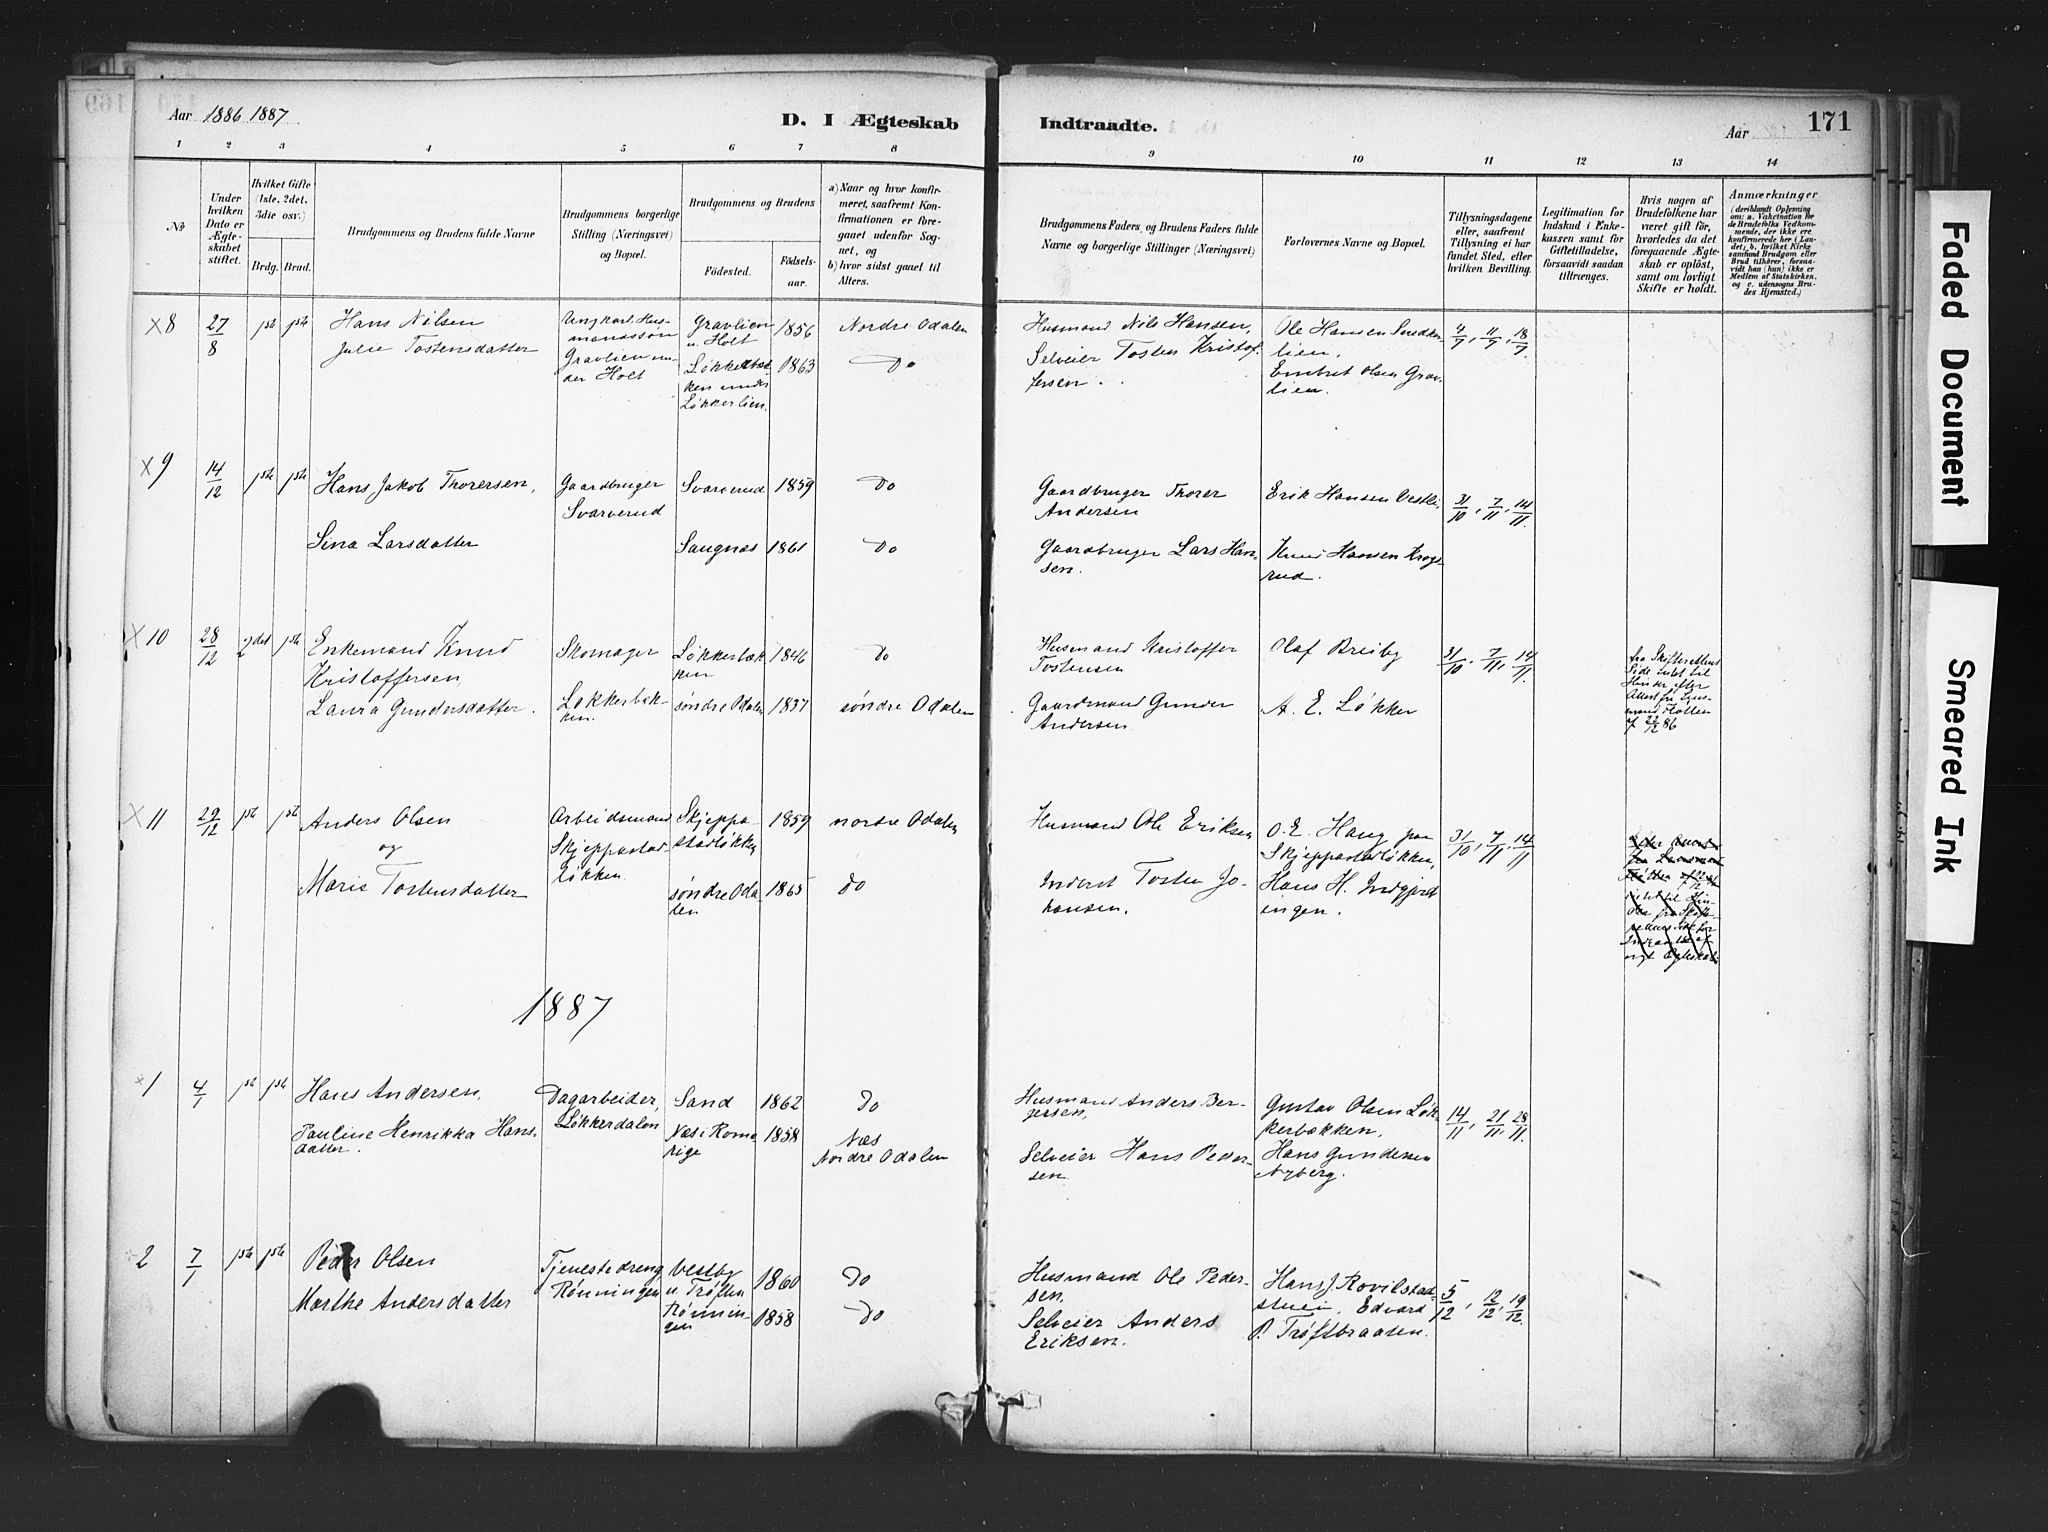 Aar 1886 1887
D. I Ægteskab
Indtraadte.
Aar
171
1 2 3 4 5 6 7 8 9 10 11 12 13 14
No
Under hvilken Dato er Ægteskabet stiftet.
Hvilket Gifte (1ste, 2det, 3die osv.)
Brdg. Brud.
Brudgommens og Brudens fulde Navne
Brudgommens borgerlige Stilling (Næringsvei) og Bopæl.
Brudgommens og Brudens
Födested.
Födselsaar.
a) Naar og hvor konfirmeret, saafremt Konfirmationen er foregaaet udenfor Sognet, og
b) hvor sidst gaaet til Alters.
Brudgommens Faders, og Brudens Faders fulde Navne og borgerlige Stillinger (Næringsvei)
Forlovernes Navne og Bopæl.
Tillysningsdagene eller, saafremt Tillysning ei har fundet Sted, efter hvilken Bevilling.
Legitimation for Indskud i Enkekassen samt for Giftetilladelse, forsaavidt saadan tiltrænges.
Hvis nogen af Brudefolkene har været gift för, hvorledes da det foregaaende Ægteskab er oplöst, samt om lovligt Skifte er holdt.
Anmærkninger (deriblandt Oplysning om: a. Vakcination for de Brudefolks Vedkommende, der ikke ere konfirmerede her i Landet; b. hvilket Kirkesamfund Brudgom eller Brud tilhörer, forsaavidt han (hun) ikke er Medlem af Statskirken, og c. udensogns Brudes Hjemsted.)
x 8 27/8 1ste 1ste
Hans Nilsen
Julie Tostensdatter
Ungkarl Husmandssøn
Gravlien under Holt
Gravlien u. Holt 1856 Nordre Odalen
Løkkerbakken under Løkkerlien. 1863 Do
Husmand Nils Hansen,
Selveier Tosten Kristoffersen.
Ole Hansen
lien.
Embret Olsen Gravlien.
4/7, 11/7, 18/7
x 9 14/12 1ste 1ste
Hans Jakob Thorersen,
Sina Larsdatter
Gaardbruger
Svarverud
Svarverud 1859 Do
Saugnæs 1861 Do
Gaardbruger Thorer Andersen
Gaardbruger Lars Hansen.
Erik Hansen Vestli
Knud Hansen Krogsrud.
31/10, 7/11, 14/11.
x 10 28/12 2det 1ste
Enkemand Knud
Kristoffersen,
Laura Gundersdatter.
Skomager
Løkkerbakken.
Løkkerbækken 1846 Do
søndre Odalen 1837 søndre Odalen
Husmand Kristoffer Tostensen
Gaardmand Gunder Andersen
Olaf Breiby
A. E. Løkker
31/10, 7/11, 14/11.
fra Skifterettens
Side intet til
Hinder efter
Attest fra Lensmand
Flotten
af 22/12 86
x 11 29/12 1ste 1ste
Anders Olsen
og
Marie Tostensdatter
Arbeidsmand
Skjeppestadløkken.
Skjeppestadløkken 1859 nordre Odalen
søndre Odalen 1865 Do
Husmand Ole Eriksen
Inderst Tosten Johansen.
O. E. Haug paa
Skjeppestadløkken,
Hans H. Indgjerdsingen.
31/10, 7/11, 14/11
1887
x 1 4/1 1ste 1ste
Hans Andersen,
Pauline Henrikka Hansdatter.
Dagarbeider,
Løkkerdalen
Sand 1862 Do
Næs i Romerige 1858 Næs
Nordre Odalen
Husmand Anders Bergersen,
Selveier Hans Pedersen
Gustav Olsen Løkkerbakken,
Hans Gundersen Nyberg.
14/11, 21/11, 28/11.
x 2 7/1 1ste 1ste
Peder Olsen
Marthe Andersdatter
Tjenestedreng
Rønningen
Vestby u. Trøften 1860 Do
Rønningen 1858 Do
Husmand Ole Pedersen.
Selveier Anders Eriksen.
Hans J. Rovilstadstuen, Edvard
P. Trøftbraaten.
5/12, 12/12, 19/12.
Faded Document
Smeared Ink